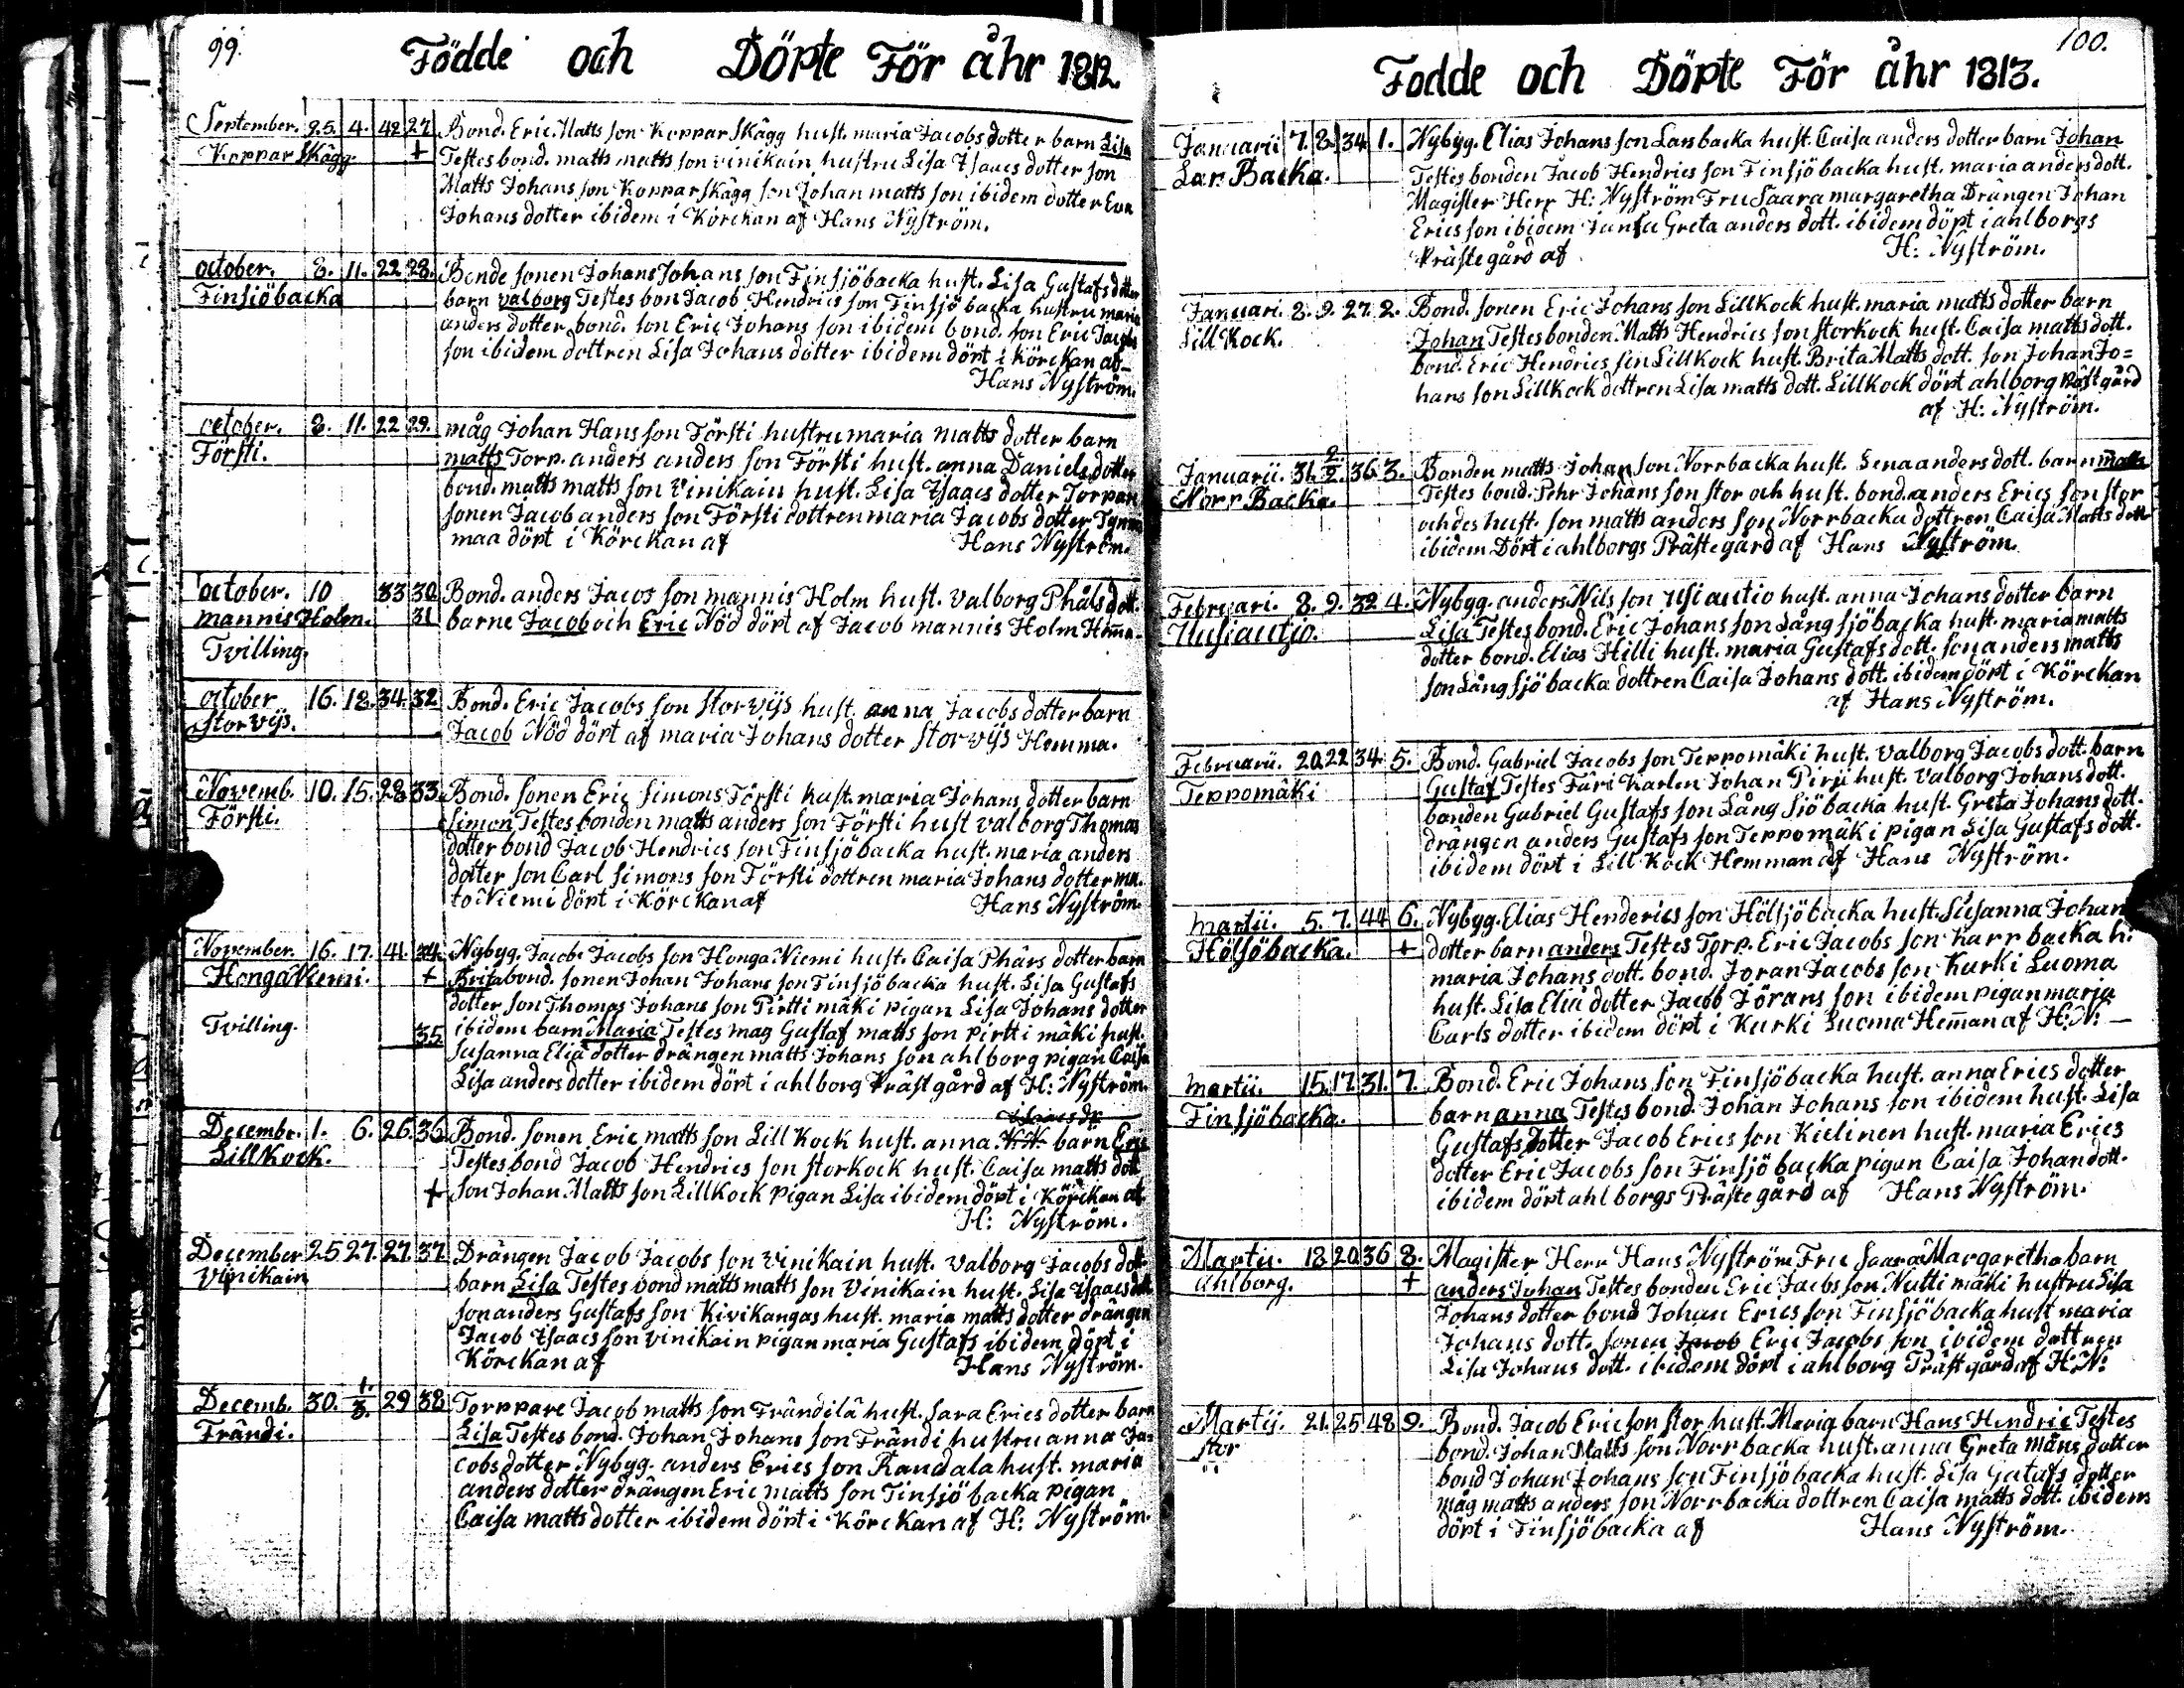 99.
Födde och Döpte För åhr 1812.
September. 25. 4. 42 27 Bond. Eric Matts son Koppar Skägg hust. maria Jacobs dotter barn Lisa
Koppar Skägg + Testes bond. matts matts son vinikain hustru Lisa Isaacs dotter son
Matts Johans son Kopparskägg son Johan matts son ibidem dotter Eva
Johans dotter ibidem i Körckan af Hans Nyström.
october. 8. 11. 22 28. Bonde sonen Johans Johans son Finsjöbacka hust. Lisa Gustafs dotter
Finsjöbacka barn valborg Testes bon Jacob Hendrics son Finsjö backa hustru maria
anders dotter bond. son Eric Johans son ibidem bond. son Eric Jacobs
son ibidem dottren Lisa Johans dotter ibidem döpt i Körckan af
Hans Nyström.
october. 8. 11. 22 29. måg Johan Hans son Försti hustru maria matts dotter barn
Försti. matts Torp. anders anders son Försti hust. anna Daniels dotter
bond. matts matts son Vinikain hust. Lisa Isaacs dotter Torpare
sonen Jacob anders son Försti dottren maria Jacobs dotter
maa döpt i Körckan af Hans Nyström.
october. 10 33 30 Bond. anders Jacos son mannis Holm hust. valborg Phåls dott.
mannis Holm. 31 barne Jacob och Eric Nöd döpt af Jacob mannis Holm
Tvilling.
october 16. 18. 34. 32 Bond. Eric Jacobs son storvijs hust. anna Jacobs dotter barn
storvijs. Jacob Nöd döpt af maria Johans dotter storvijs Hemma.
Novemb. 10. 15. 28 33 Bond. sonen Eric Simons Försti hust. maria Johans dotter barn
Försti. Simon Testes bonden matts anders son Försti hust valborg Thomas
dotter bond Jacob Hendrics son Finsjö backa hust. maria anders
dotter son Carl Simons son Försti dottren maria Johans dotter ma.
to Niemi döpt i Körckan af Hans Nyström.
November. 16. 17. 41. 34. Nybyg. Jacob Jacobs son Honga Niemi hust. Caisa Phärs dotter barn
Honga Niemi. + Brita bond. sonen Johan Johans son Finsjöbacka hust. Lisa Gustafs
dotter son Thomas Johans son Pirtti mäki pigan Lisa Johans dotter
Tvilling. 35 ibidem barn Maria Testes mag Gustaf matts son pirtti mäki hust.
Susanna Elia dotter drängen matts Johans son ahlborg pigan Caisa
Lisa anders dotter ibidem döpt i ahlborg Präst gård af H: Nyström.
Decembr. 1. 6. 26. 36 Bond. sonen Eric matts son Lill Kock hust. anna barn Eric
Lillkock. Testes bond Jacob Hendrics son storkock hust. Caisa matts dott
+ son Johan Matts son Lillkock pigan Lisa ibidem döpt i Körckan af
H: Nyström.
December 25 27. 27 37 Drängen Jacob Jacobs son Vinikain hust. valborg Jacobs dott.
Vinikain barn Lisa Testes bond matts matts son Vinikain hust. Lisa Isaacs dott
son anders Gustafs son Kivikangas hust. maria matts dotter drängen
Jacob Isaacs son vinikain pigan maria Gustafs ibidem döpt i
Körckan af Hans Nyström.
Decemb. 30. 1./3. 29 38 Torppare Jacob matts son Frändilä hust. sara Erics dotter barn
Frändi. Lisa Testes bond. Johan Johans son Frändi hustru anna Ja=
cobs dotter Nybyg. anders Erics son Randala hust. maria
anders dotter drängen Eric matts son Finsjö backa pigan
Caisa matts dotter ibidem döpt i Körckan af H: Nyström.
100.
Fodde och Döpte För åhr 1813.
Januarii 7. 8. 34 1. Nybyg. Elias Johans son Larsbacka hust. Caisa anders dotter barn Johan
Lar Backa. Testes bonden Jacob Hendrics son Finsjö backa hust. maria anders dott.
Magister Herr H: Nyström Fru Saara margaretha Drängen Johan
Erics son ibidem Greta anders dott. ibidem döpt i ahlborgs
Prästegård af H: Nyström.
Januari. 8. 9. 27. 2. Bond. sonen Eric Johans son Lillkock hust. maria matts dotter barn
Lill Kock. Johan Testes bonden Matts Hendrics son storkock hust. Caisa matts dott.
bond. Eric Hendrics son Lillkock hust. Brita Matts dott. son Johan Jo=
hans son Lillkock dottren Lisa matts dott. Lillkock döpt ahlborg Präst gård
af H: Nyström.
Januarii. 31. 2/2. 36 3. Bonden matts Johan son Norrbacka hust. Lena anders dott. barn matts
Norr Backa. Testes bond. Pehr Johans son stor och hust. bond. anders Erics son stor
och des hust. son matts anders son Norrbacka dottren Caisa Matts dott
ibidem Döpt i ahlborgs Prästegård af Hans Nyström.
Februari. 8. 9. 32 4. Nybyg. anders Nils son usiautio hust. anna Johans dotter barn
Uusiautio. Lisa Testes bond. Eric Johans son Lång sjö backa hust. maria matts
dotter bond. Elias Hilli hust. maria Gustafs dott. son anders matts
son Lång sjö backa dottren Caisa Johans dott. ibidem döpt i Körckan
af Hans Nyström.
Februarii. 20. 22 34. 5. Bond. Gabriel Jacobs son Teppomäki hust. valborg Jacobs dott. barn
Teppomäki Gustaf Testes Färi Karlen Johan hust. Valborg Johans dott.
bonden Gabriel Gustafs son Lång Sjö backa hust. Greta Johans dott.
drängen anders Gustafs son Teppomäki pigan Lisa Gustafs dott.
ibidem döpt i Lill Kock Hemman af Hans Nyström.
martii. 5. 7. 44 6. Nybyg. Elias Henderics son Hölsjöbacka hust. Susanna Johan
Hölsöbacka. + dotter barn anders Testes Torp. Eric Jacobs son Karr backa h:
maria Johans dott. bond. Joran Jacobs son Kurki Luoma
hust. Lisa Elia dotter Jacob Jörans son ibidem pigan maria
Carls dotter ibidem döpt i Kurki Luoma Hem̄an af H: N: —
martii. 15. 17. 31. 7. Bond. Eric Johans son Finsjöbacka hust. anna Erics dotter
Finsjöbacka. barn anna Testes bond. Johan Johans son ibidem hust. Lisa
Gustafs Dotter Jacob Erics son Kielinen hust. maria Erics
dotter Eric Jacobs son Finsjö backa pigan Caisa Johan dott.
ibidem döpt ahlborgs Prästegård af Hans Nyström.
Martii. 18 20 36 8. Magister Herr Hans Nyström Fru Saara Margaretha barn
ahlborg. + anders Johan Testes bonden Eric Jacobs son Nutti mäki hustru Lisa
Johans dotter bond Johan Erics son Finsjöbacka hust maria
Johans dott. sonen Jacob Eric Jacobs son ibidem dottren
Lisa Johans dott. ibidem döpt i ahlborg Präst gård af H: N:
Martii. 21. 25 48 9. Bond. Jacob Ericson stor hust. Maria barn Hans Hendric Testes
stor bond. Johan Matts son Norrbacka hust. anna Greta Måns dotter
bond Johan Johans son Finsjöbacka hust. Lisa Gutafs dotter
måg matts anders son Norrbacka dottren Caisa matts dott. ibidem
döpt i Finsjöbacka af Hans Nyström.